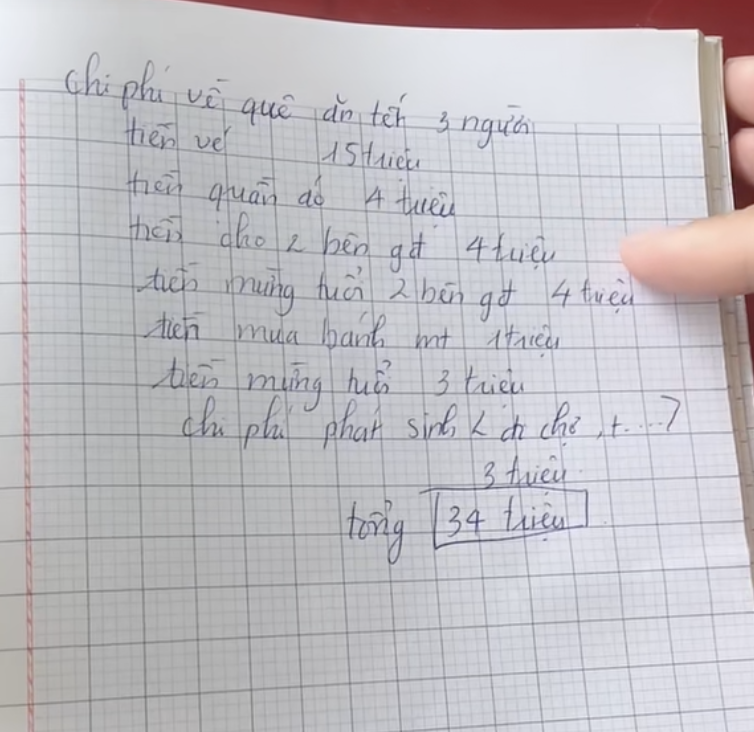 chi phí về quê ăn tết 3 người
tiền vé 15 triệu
tiền quần áo 4 triệu
tiền cho 2 bên gđ 4 triệu
tiền mừng tuổi 2 bên gđ 4 triệu
tiền mua bánh mt 1 triệu
tiền mừng tuổi 3 triệu
chi phí phát sinh < đi chợ, +....>
3 triệu
tổng 34 triệu